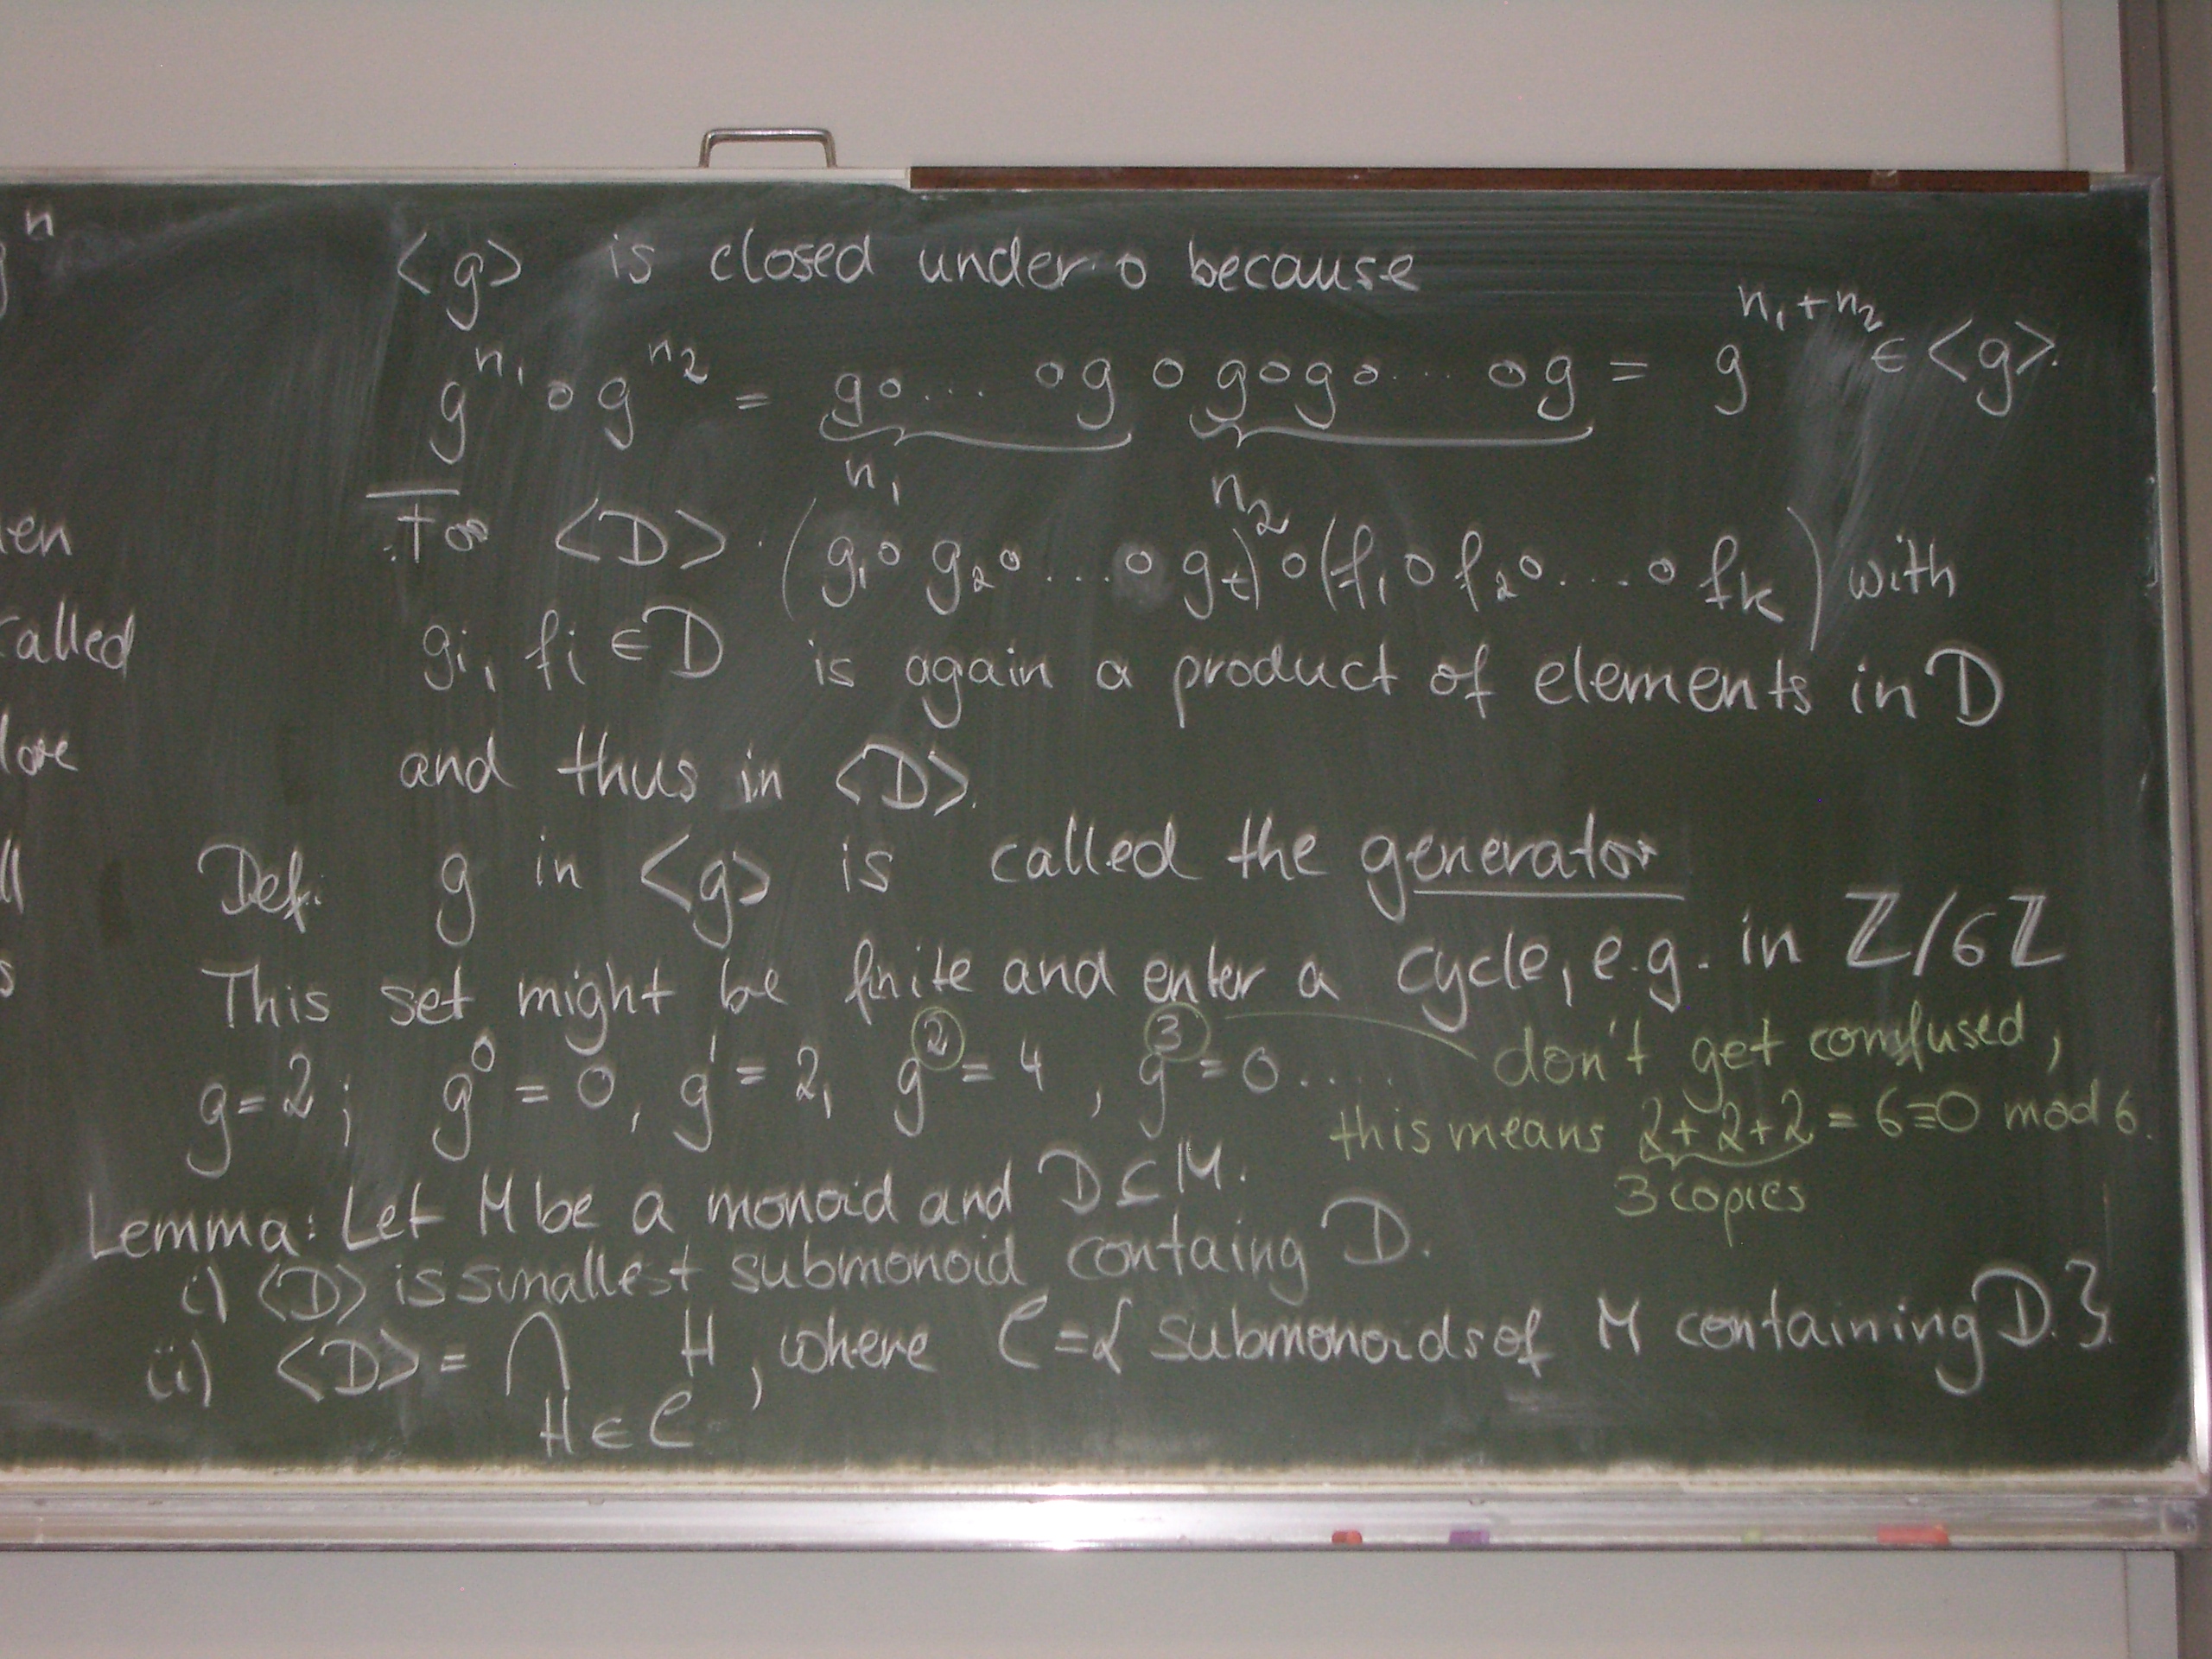 n
<g> is closed under ∘ because
g^{n₁} ∘ g^{n₂} = g∘.... ∘g ∘ g∘g∘... ∘g = g^{n₁+n₂} ∈ <g>.
n₁ n₂
en
For <D> (g₁∘ g₂∘ ....∘ g_t) ∘ (f₁∘ f₂∘ ....∘ f_k) with
called
gᵢ, fᵢ ∈ D is again a product of elements in D
and thus in <D>.
Def. g in <g> is called the generator
This set might be finite and enter a cycle, e.g. in ℤ/6ℤ
g=2; g⁰ = 0, g¹ = 2, g² = 4, g³ = 0....
don't get confused,
this means 2+2+2 = 6≡0 mod 6.
3 copies
Lemma: Let M be a monoid and D ⊆ M.
i) <D> is smallest submonoid containg D.
ii) <D> = ⋂ H, where C = { submonoids of M containing D. }
H ∈ C